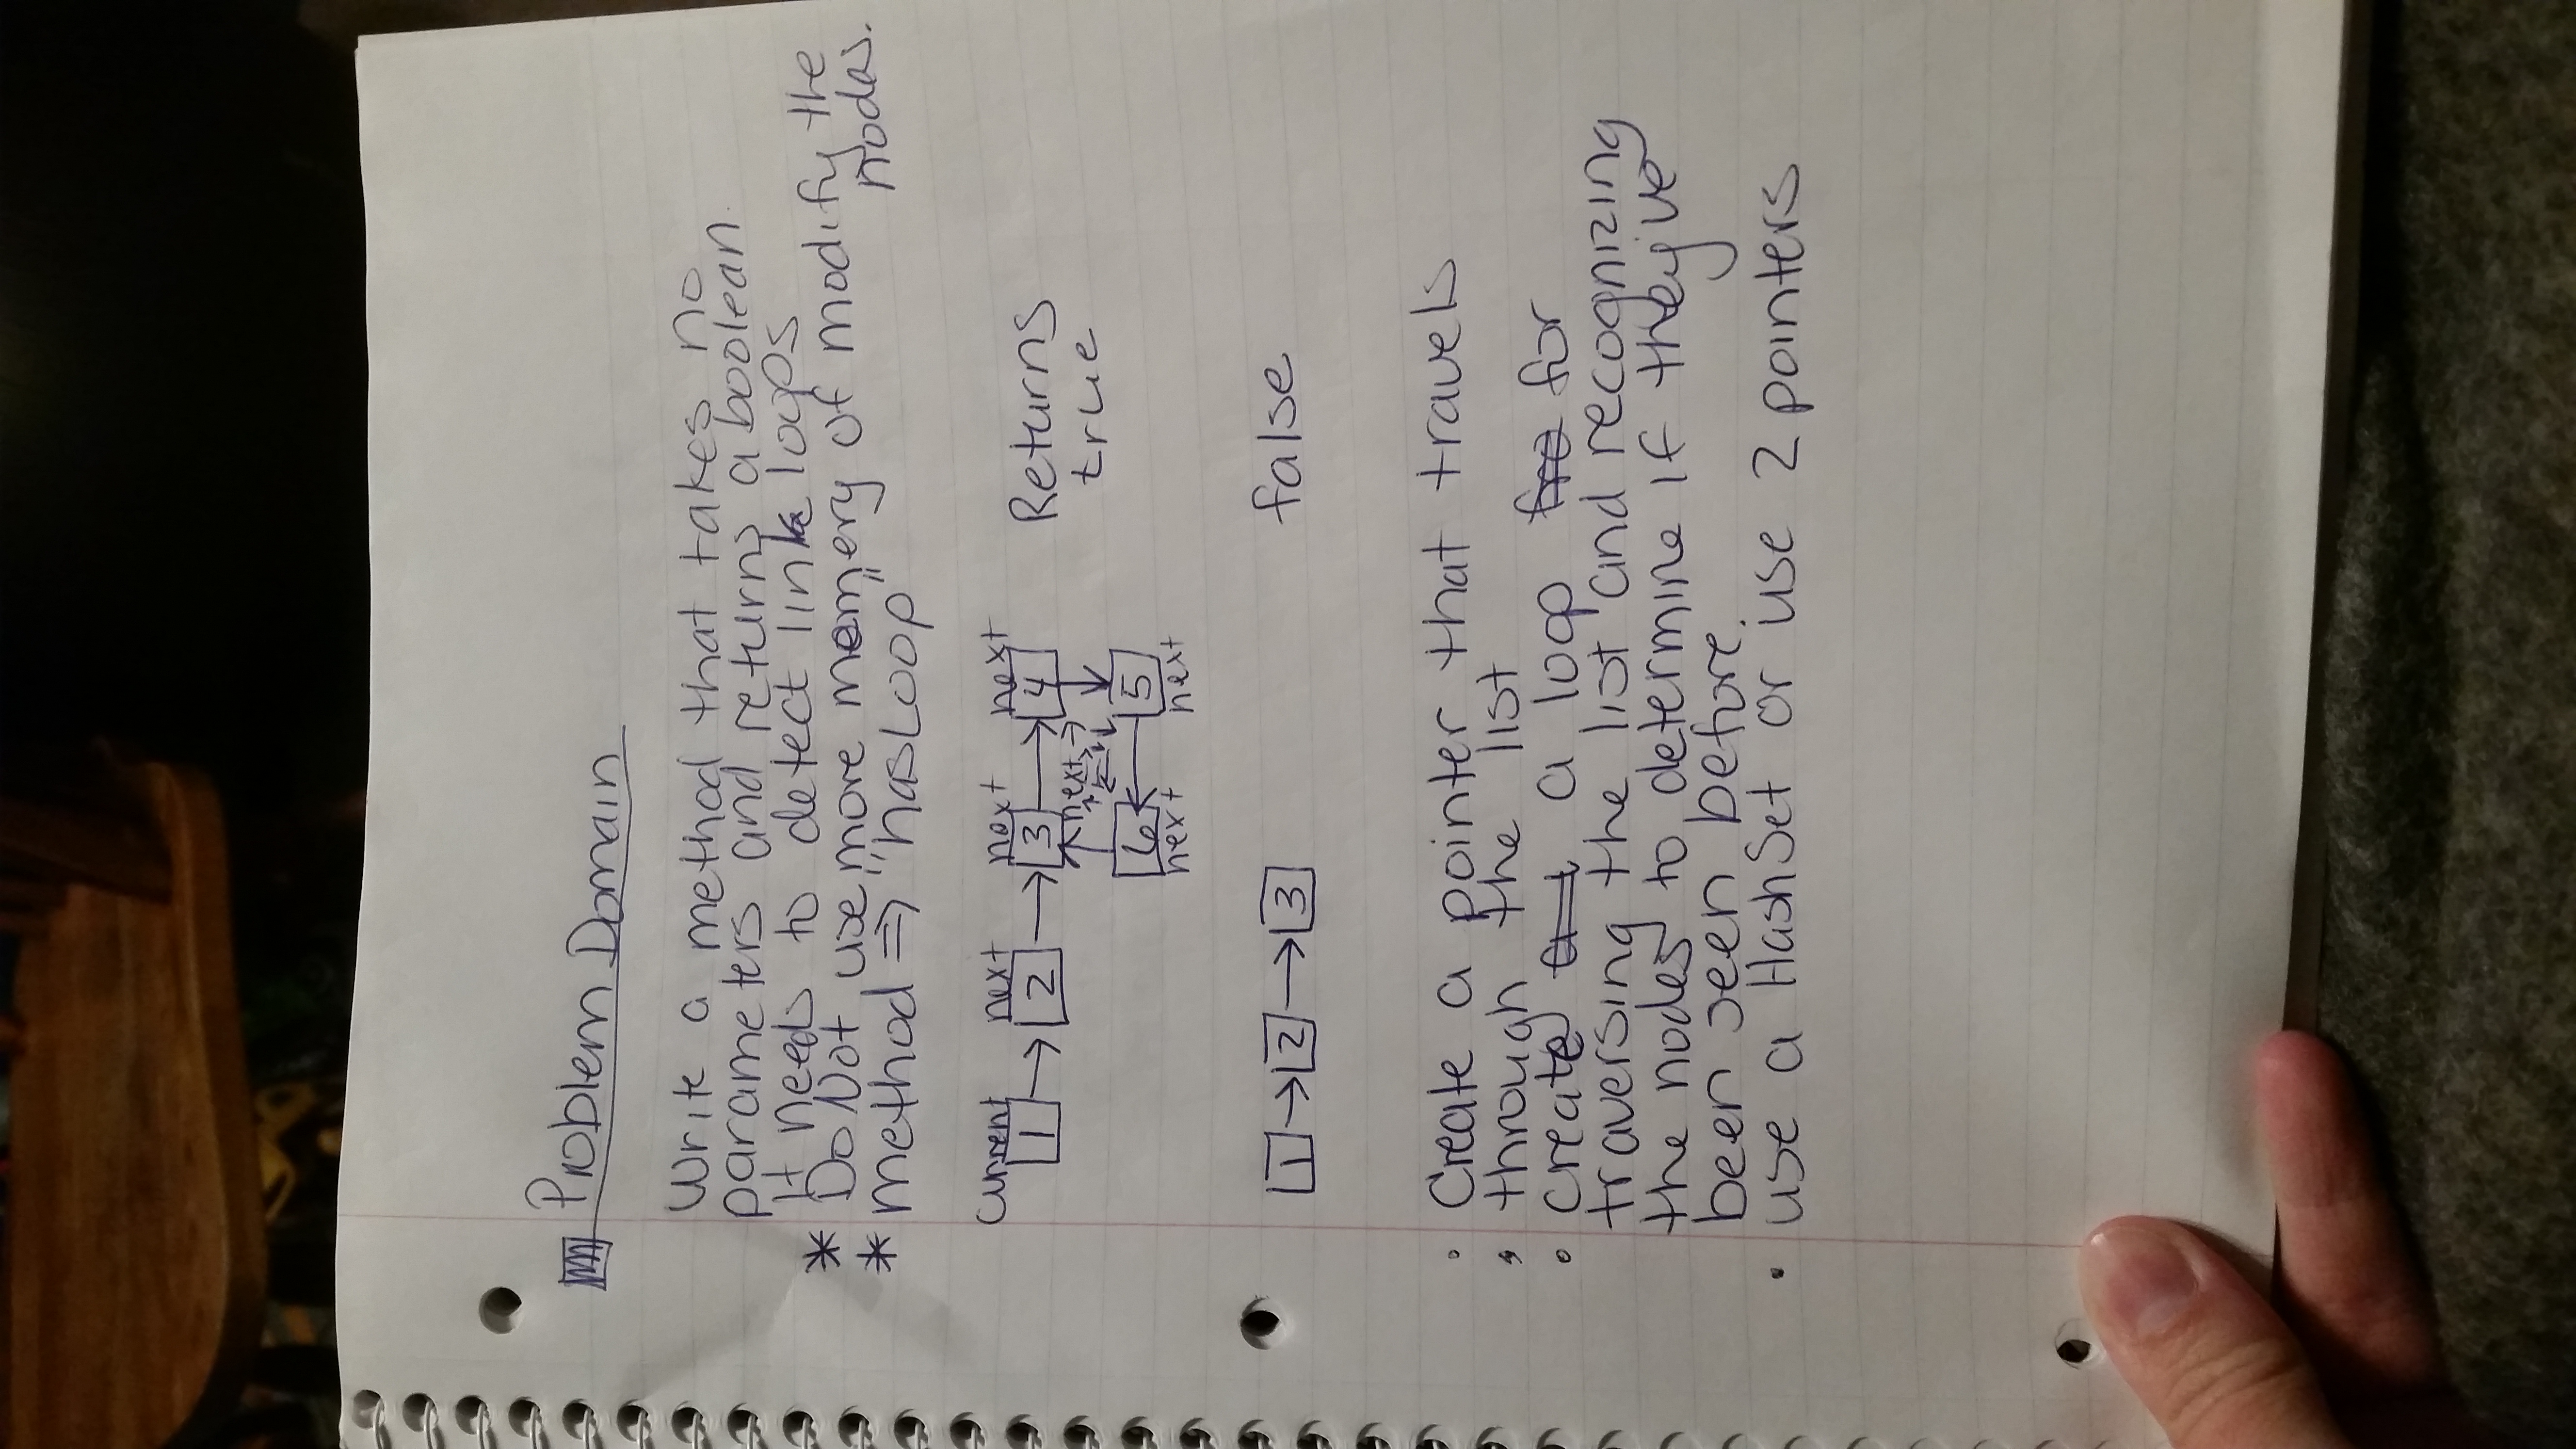 Problem Domain
Write a method that takes no
parameters and returns a boolean.
It needs to detect link loops
* Do Not use more memery of modify the
nodes.
* method ⇒ "hasLoop"
Current next next next
1 → 2 → 3 → 4 Returns
next → true
6 ← 5
next next
1 → 2 → 3 false
• Create a pointer that travels
• through the list
• create a loop for
traversing the list and recognizing
the nodes to determine if they've
been seen before.
• use a HashSet or use 2 pointers